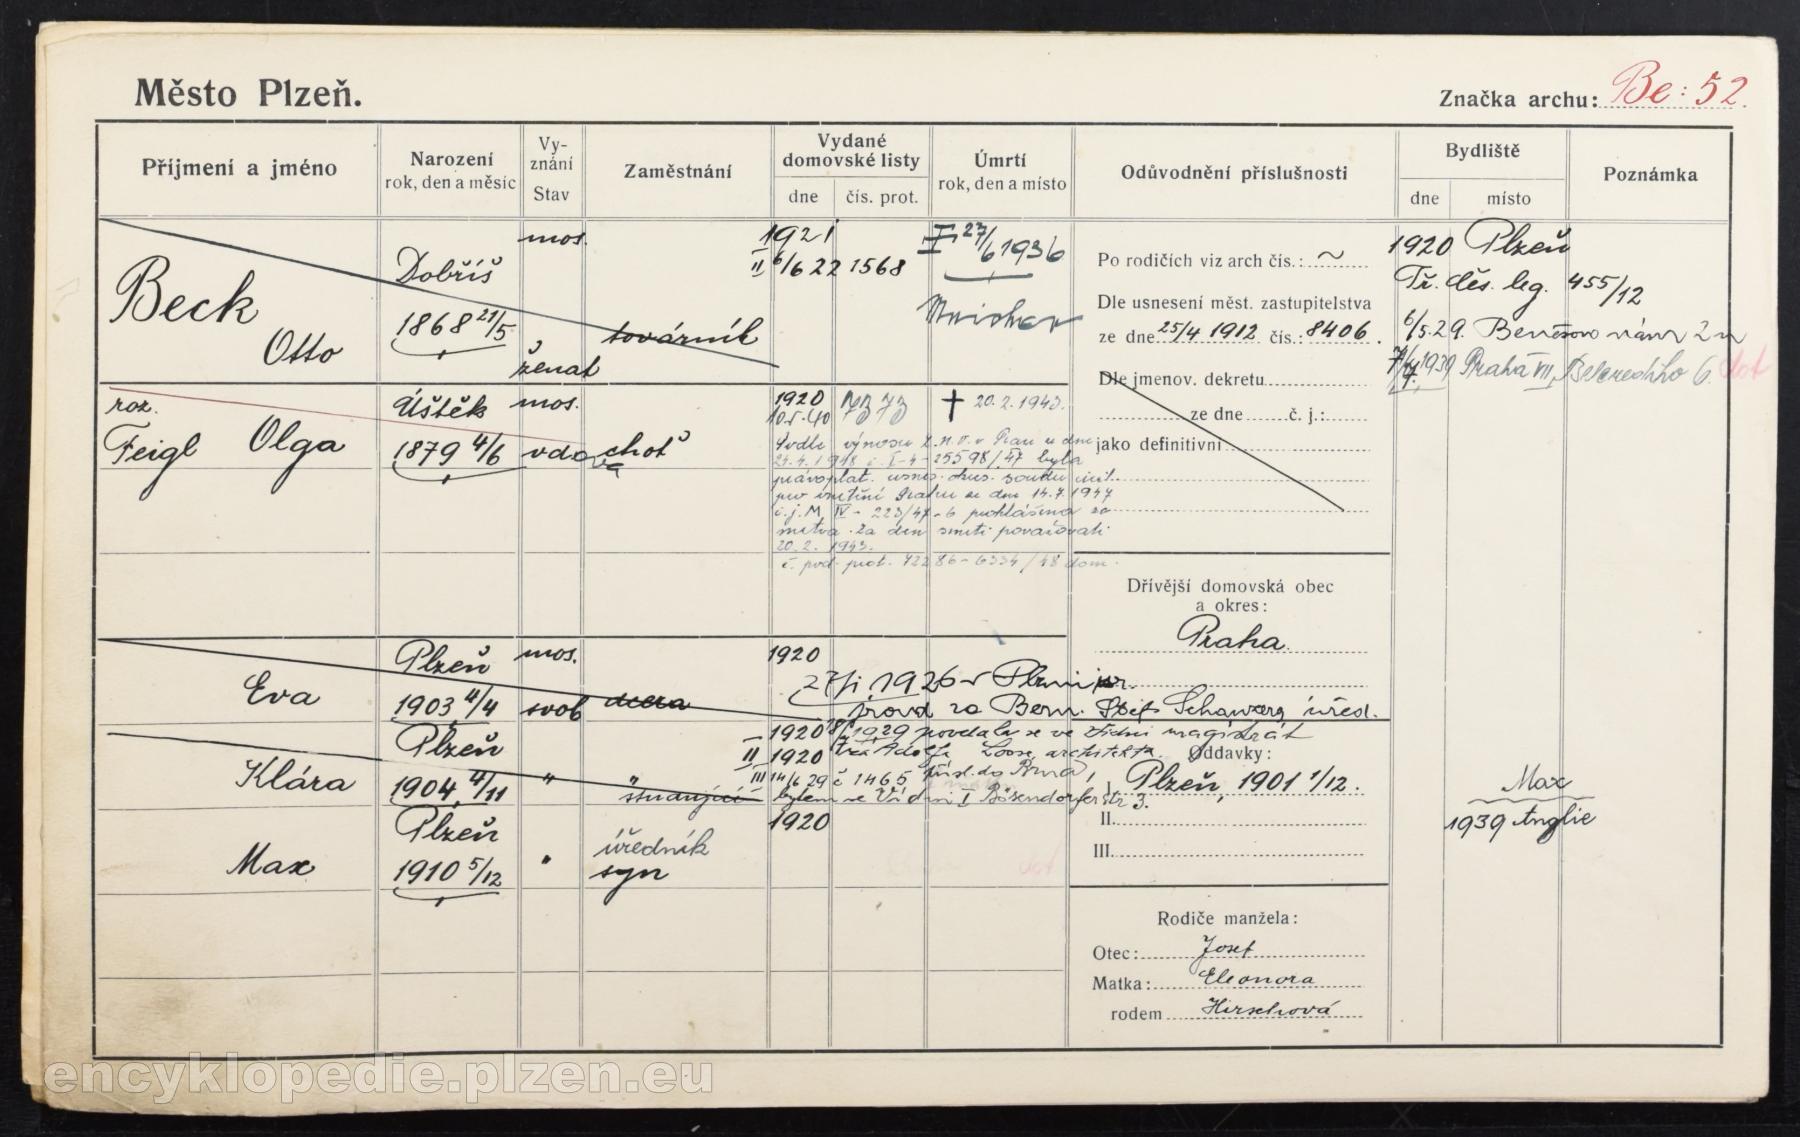 Město Plzeň.
Značka archu: Be: 52.
Příjmení a jméno
Narození
rok, den a měsíc
Vy-
znání
Stav
Zaměstnání
Vydané
domovské listy
dne
čís. prot.
Úmrtí
rok, den a místo
Odůvodnění příslušnosti
Bydliště
dne
místo
Poznámka
Beck
Otto
Dobříš
1868 21/5
mos.
ženat
továrník
1921
II 6/6 22 1568
I 27/6 1936
Mnichov
Po rodičích viz arch čís.: ~
Dle usnesení měst. zastupitelstva
ze dne 25/4 1912 čís.: 8406.
Dle jmenov. dekretu
ze dne č. j.:
jako definitivní
1920 Plzeň
Tř. čes. leg. 455/12
6/5.29. Benešovo nám 2 n
1939 Praha VII, Belcrediho 6.
roz.
Feigl Olga
Úštěk
1879 4/6
mos.
vdova
choť
1920
10.5.40 7373
† 20.2.1943.
Podle výnosu z. n. v. v Praze ze dne
24.4.1948 č. I-4-25598/47 byla
právoplat. usnes. okres. soudu civil.
pro vnitřní Prahu ze dne 14.7.1947
č.j. M IV - 223/47-6 prohlášena za
mrtva. Za den smrti považovati
20.2.1943.
č. pod. prot. 72286-6334/48 dom.
Dřívější domovská obec
a okres:
Praha.
Eva
Plzeň
1903 4/4
mos.
svob
dcera
1920
1926 v Plzni
provd za Bern. Schwarz úřed.
Klára
Plzeň
1904 4/11
"
"
studující
I 1920
II 1920
III 14/6 29 č 1465
1929 provdala se ve Vídni magistrát
za Adolfa Loose, architekta
přísl. do Brna,
bytem ve Vídni I Bösendorferstr 3.
Oddavky:
I. Plzeň, 1901 1/12.
II.
III.
Max
Plzeň
1910 5/12
"
úředník
syn
1920
Max
1939 Anglie
Rodiče manžela:
Otec: Josef
Matka: Eleonora
rodem Hirschová
encyklopedie.plzen.eu